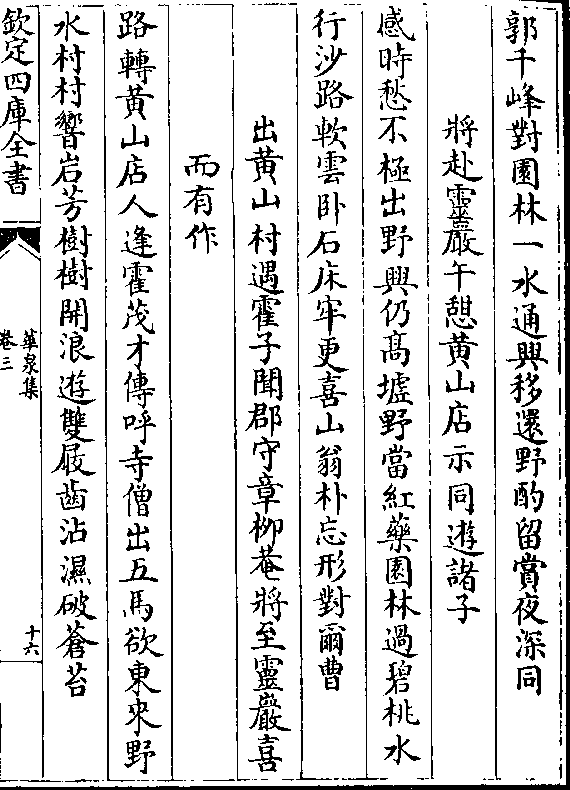 郭千峰對園林一水通興移還野酌留賞夜深同
將赴靈巖午憇黄山店示同遊諸子
感時愁不極出野興仍髙墟野當紅藥園林過碧桃水
行沙路軟雲卧石床牢更喜山翁朴忘形對爾曹
出黄山村遇霍子聞郡守章栁菴將至靈巖喜
而有作
路轉黄山店人逢霍茂才傳呼寺僧出五馬欲東來野
水村村響岩芳樹樹開浪遊雙屐齒沾濕破蒼苔
欽定四庫全書
華泉集
卷三
十六